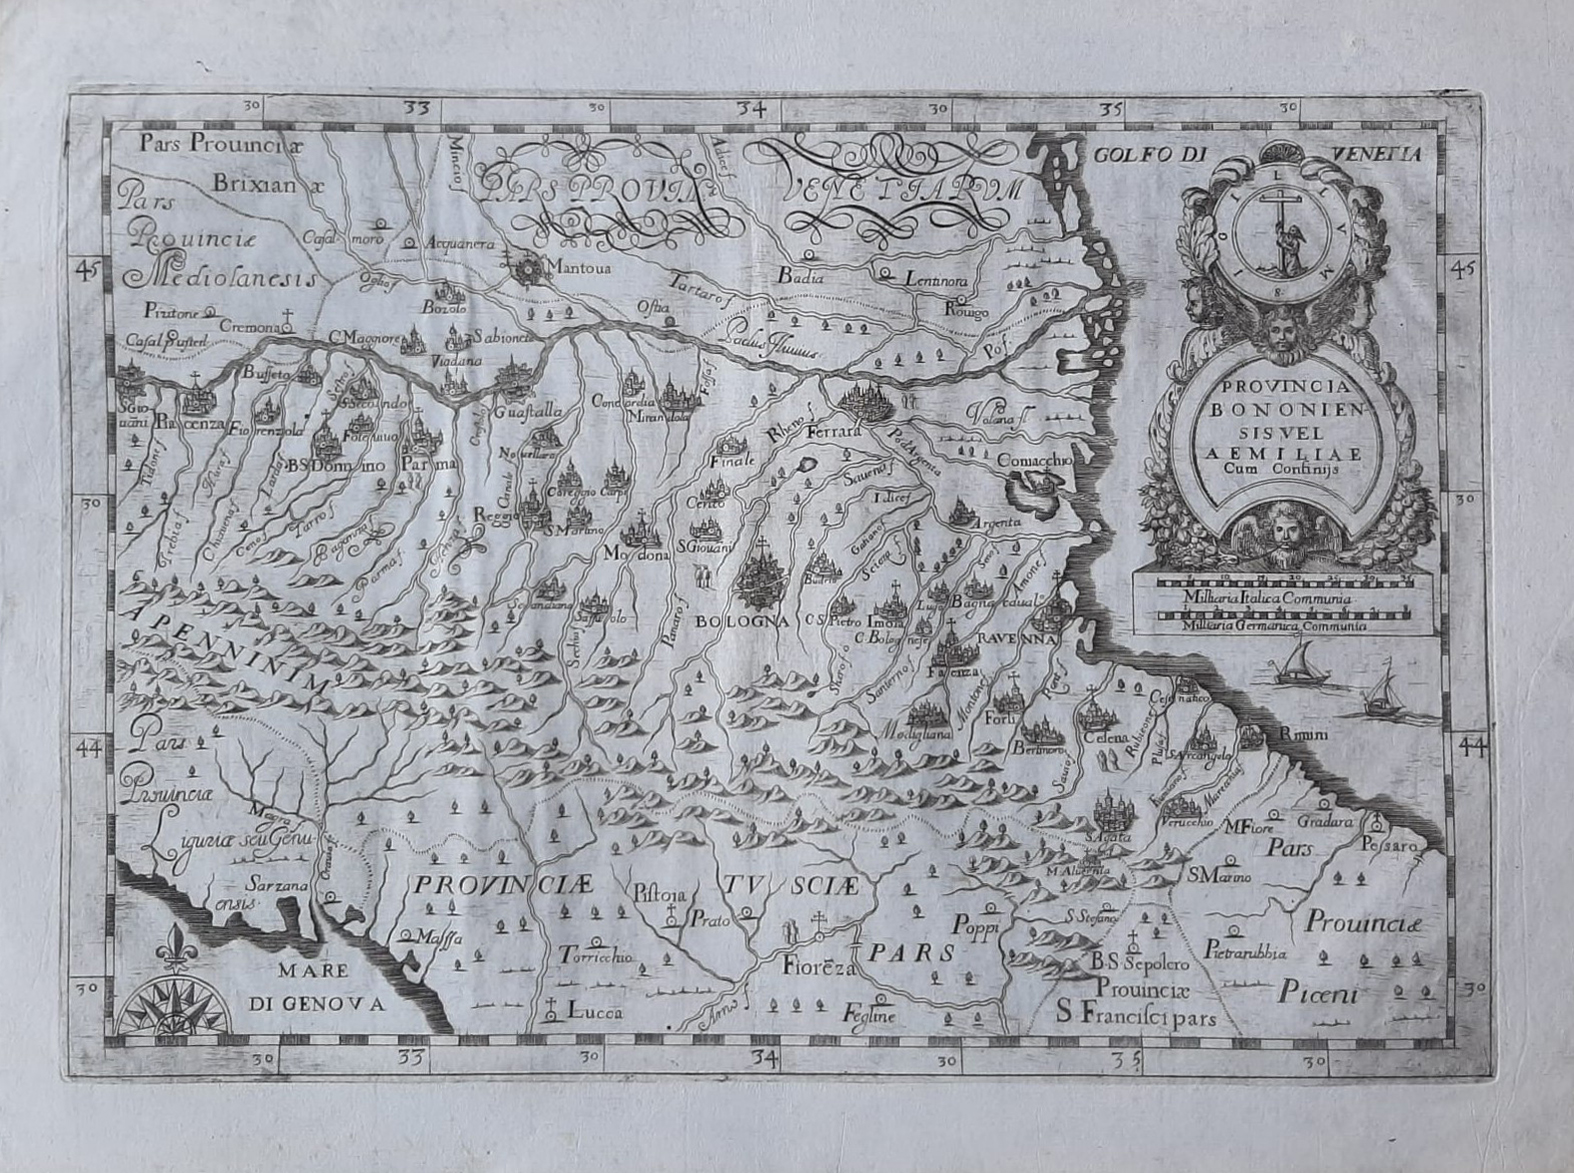 30 33 30 34 30 35 30
Pars Prouinciæ
Brixianæ
Pars
Prouinciæ
Mediolanesis
Mincio f
Adice f
PARS PROVIÆ VENETIARVM
GOLFO DI VENETIA
45
45
Casal moro
Acquanera
Oglio f
Mantoua
Bozolo
Ostia
Tartaro f
Badia
Lentinora
Rouigo
Cremona
C Magnore
Sabioneta
Viadana
Padus fluuius
Po f
Buſſeto
Piacenza
Fiorenzola
S Secondo
Guastalla
Concordia
Mirandola
Fossa f
Rheno f
Ferrara
Volana fl
Po d'Argenta
B S Donnino
Parma
Nouellara
Finale
Comacchio
Coreggio
Carpi
Cento
Sauena f
Idice f
30
30
Reggio
S Martino
Modona
S Giouani
Argenta
Trebia f
Ceno f
Tarro f
Parma f
Panaro f
Sechia f
BOLOGNA
C S Pietro
Imola
Bagnacauallo
C Bolognese
RAVENNA
Faenza
Santerno f
Montone f
APENNINIM
Modigliana
Forli
Bertinoro
Cesena
Cesenatico
Rubicone f
S Arcangelo
Rimini
44
44
Pars
Prouinciæ
Liguriæ seu Genu
ensis
Magra
Sarzana
Verucchio
M Fiore
Gradara
Pessaro
S Agata
M Aluernia
S Marino
Pars
Prouinciæ
Piceni
PROVINCIÆ TVSCIÆ
PARS
Pistoia
Prato
Poppi
S Stefano
Massa
Torricchio
Fiorēza
B S Sepolcro
Pietrarubbia
Prouinciæ
S Francisci pars
MARE
DI GENOVA
Lucca
Arno f
Fegline
30
30
LILIVM
PROVINCIA
BONONIEN
SIS VEL
AEMILIAE
Cum Confinijs
Milliaria Italica Communia
Milliaria Germanica Communia
30 33 30 34 30 35 30